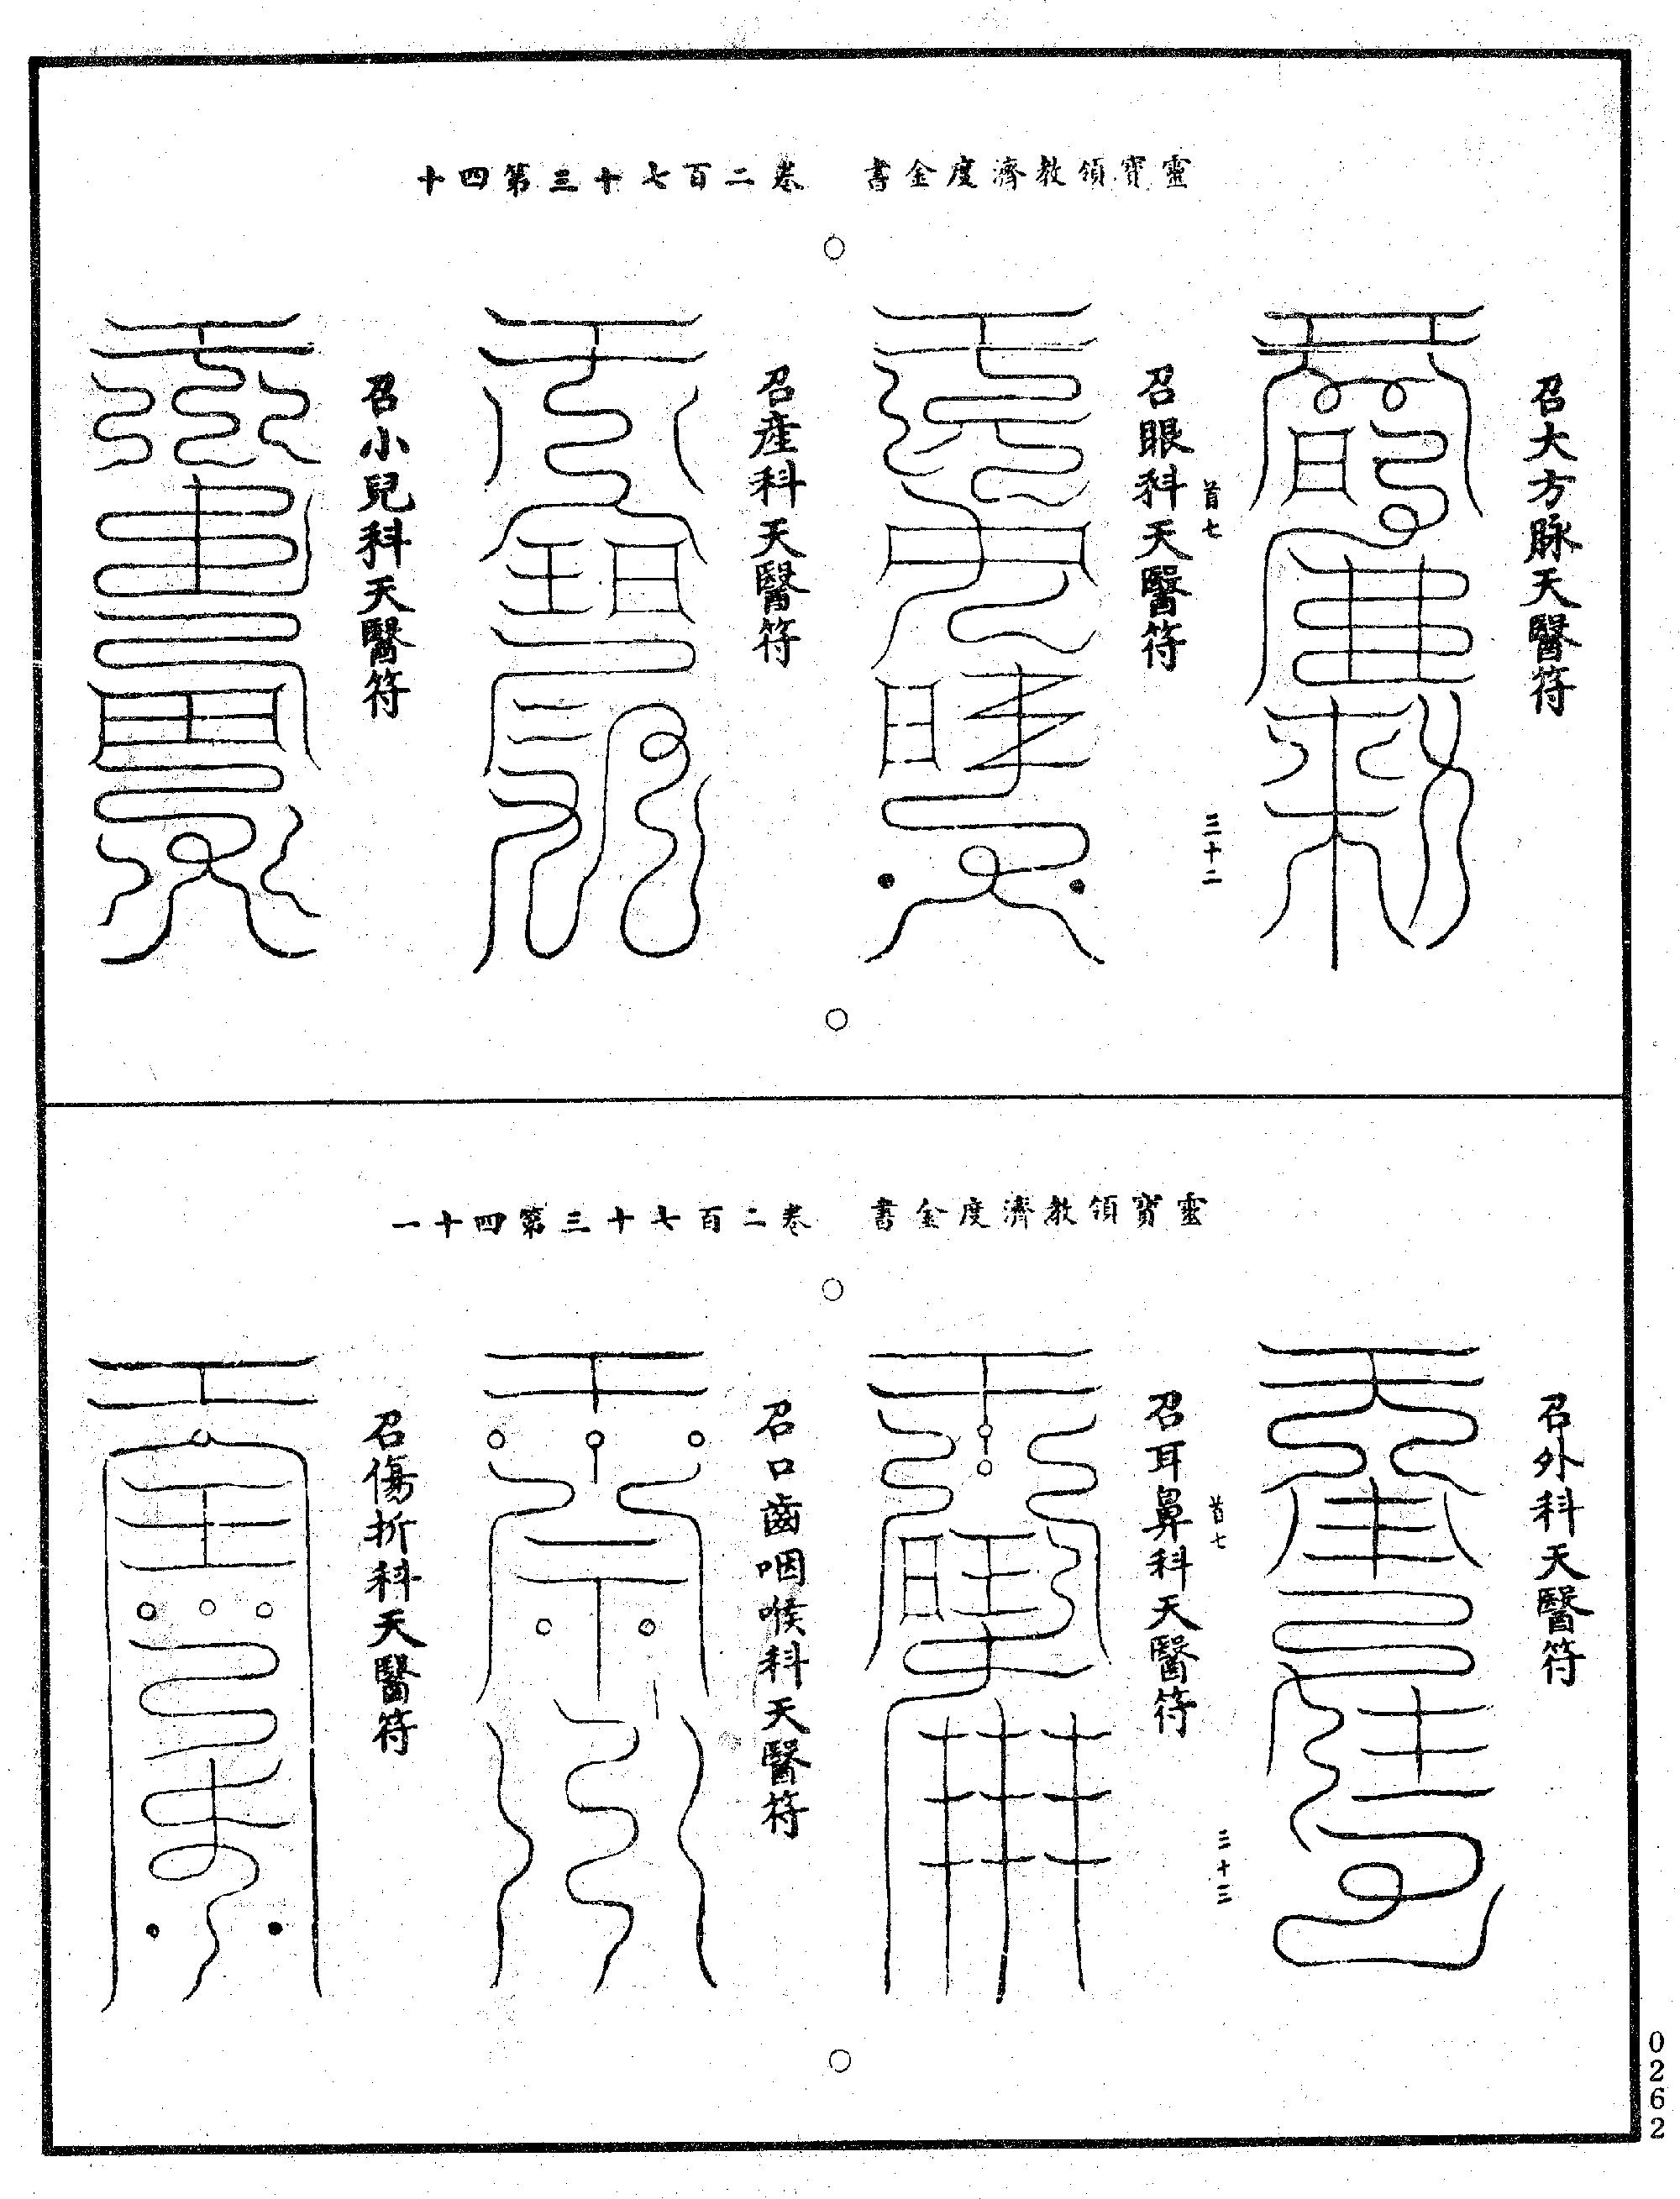 靈寶領教濟度金書　卷二百七十三第四十
召大方脉天醫符
首七　三十二
召眼科天醫符
召產科天醫符
召小兒科天醫符
靈寶領教濟度金書　卷二百七十三第四十一
召外科天醫符
首七　三十三
召耳鼻科天醫符
召口齒咽喉科天醫符
召傷折科天醫符
0262